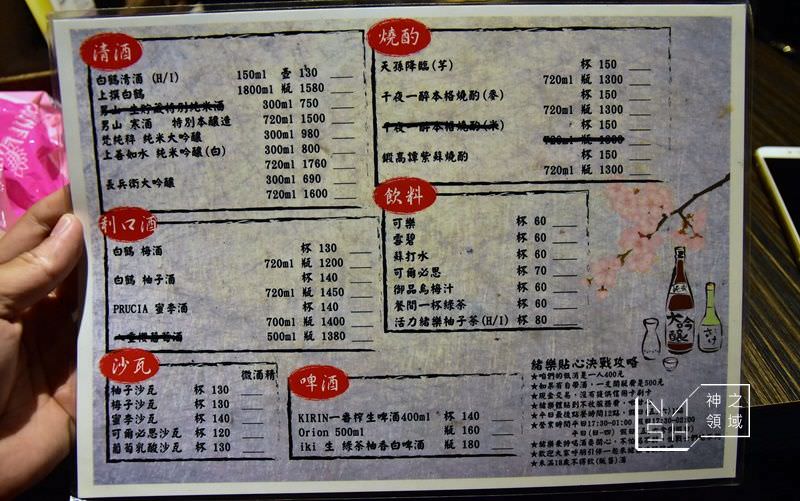 清酒
白鶴清酒 (H/I) 150ml 壺 130
上撰白鶴 1800ml 瓶 1580
男山 生貯藏特別純米酒 300ml 750
男山 寒酒 特別本釀造 720ml 1500
梵純粹 純米大吟釀 300ml 980
上善如水 純米吟釀(白) 300ml 800
720ml 1760
長兵衛大吟釀 300ml 690
720ml 1600
利口酒
白鶴 梅酒 杯 130
720ml 瓶 1200
白鶴 柚子酒 杯 140
720ml 瓶 1450
PRUCIA 蜜李酒 杯 140
700ml 瓶 1400
500ml 瓶 1380
沙瓦
微酒精
柚子沙瓦 杯 130
梅子沙瓦 杯 130
蜜李沙瓦 杯 140
可爾必思沙瓦 杯 120
葡萄乳酸沙瓦 杯 130
燒酌
天孫降臨(芋) 杯 150
720ml 瓶 1300
千夜一醉本格燒酌(麥) 杯 150
720ml 瓶 1300
千夜一醉本格燒酌(米) 杯 150
720ml 瓶 1300
鍛高譚紫蘇燒酌 杯 150
720ml 瓶 1300
飲料
可樂 杯 60
雪碧 杯 60
蘇打水 杯 60
可爾必思 杯 70
御品烏梅汁 杯 60
餐間一杯綠茶 杯 60
活力緒樂柚子茶(H/I) 杯 80
啤酒
KIRIN一番榨生啤酒400ml 杯 140
Orion 500ml 瓶 160
iki 生 綠茶柚香白啤酒 瓶 180
大吟釀
緒樂貼心決戰攻略
★咱們的低消是一人400元
★如果有自帶酒，一支開瓶費是500元
★現金交易，沒有提供信用卡刷卡
★未滿18歲不得飲(販售)酒
神之領域